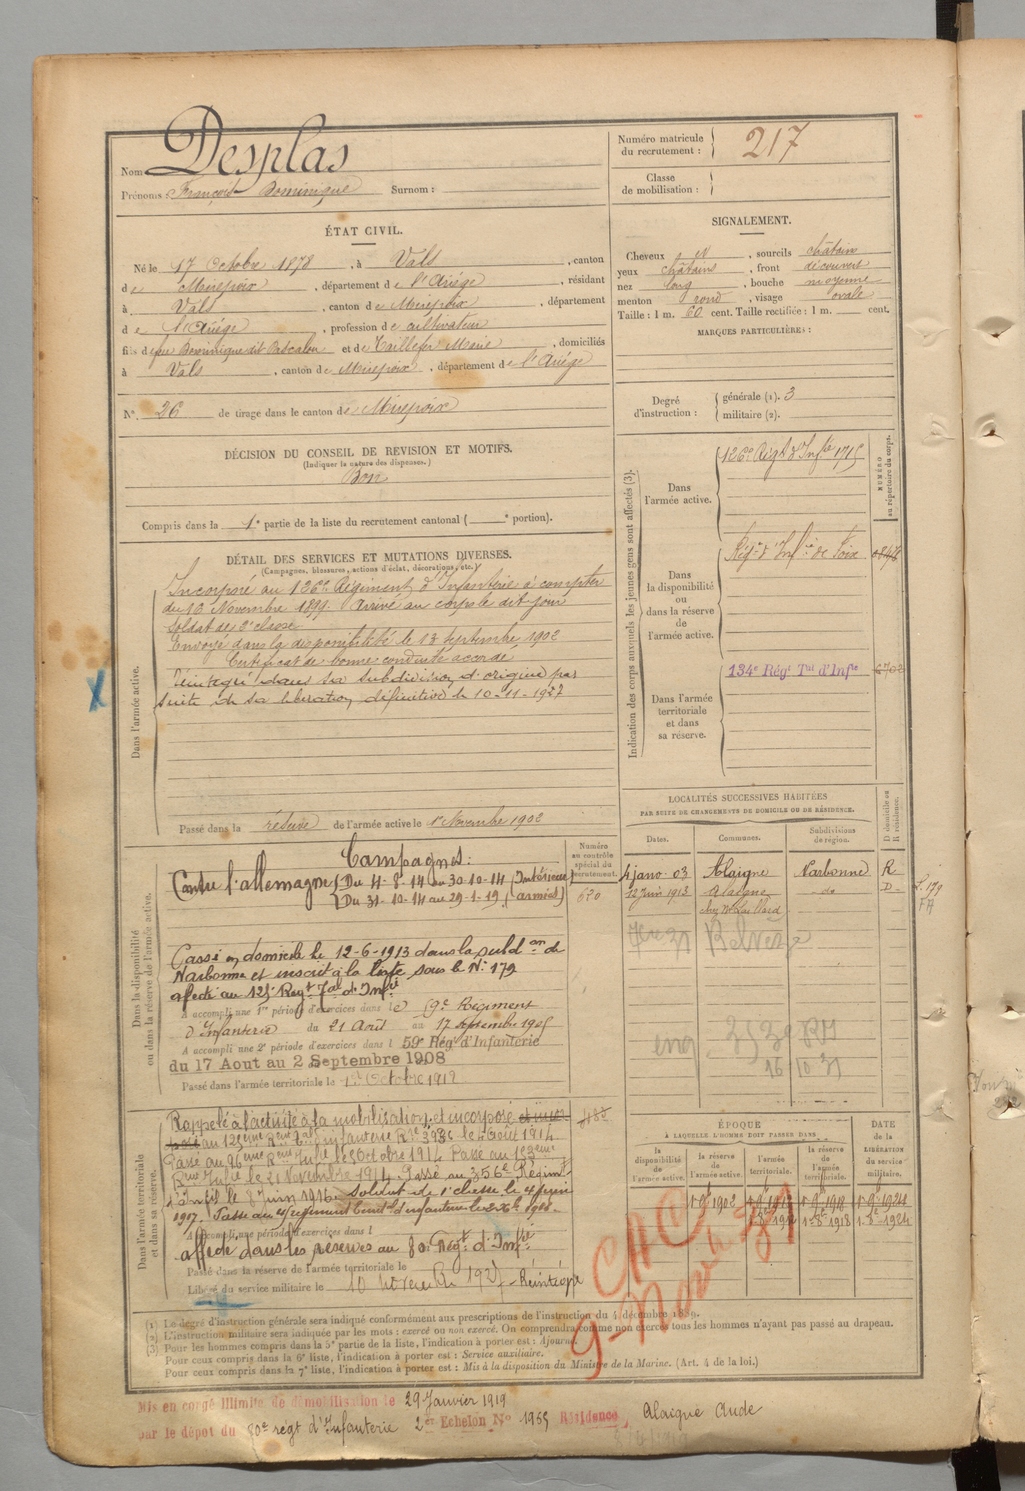 Nom Desplas
Prénoms : François Dominique Surnom :
Numéro matricule du recrutement : 217
Classe de mobilisation :
ÉTAT CIVIL.
Né le 17 Octobre 1878, à Vals, canton
de Mirepoix, département de l'Ariège, résidant
à Vals, canton de Mirepoix, département
de l'Ariège, profession de cultivateur
fils de feu Dominique dit Pascalou et de Taillefer Marie, domiciliés
à Vals, canton de Mirepoix, département de l'Ariège
N° 26 de tirage dans le canton de Mirepoix
SIGNALEMENT.
Cheveux et, sourcils châtain
yeux châtains, front découvert
nez long, bouche moyenne
menton rond, visage ovale
Taille : 1 m. 60 cent. Taille rectifiée : 1 m. cent.
MARQUES PARTICULIÈRES :
Degré d'instruction : générale (1). 3
militaire (2).
DÉCISION DU CONSEIL DE REVISION ET MOTIFS.
(Indiquer la nature des dispenses.)
Bon
Compris dans la 1e partie de la liste du recrutement cantonal ( e portion).
DÉTAIL DES SERVICES ET MUTATIONS DIVERSES.
(Campagnes, blessures, actions d'éclat, décorations, etc.)
Dans l'armée active.
Incorporé au 126e Régiment d'Infanterie à compter
du 16 Novembre 1899. Arrivé au corps le dit jour
Soldat de 2e classe
Envoyé dans la disponibilité le 13 Septembre 1902
Certificat de bonne conduite accordé
Réintégré dans sa subdivision d'origine par
suite de sa libération définitive le 10-11-1927
Passé dans la réserve de l'armée active le 1er Novembre 1902
Indication des corps auxquels les jeunes gens sont affectés (3).
NUMÉRO au répertoire du corps.
Dans l'armée active.
126e Régt d'Infie 1715
Dans la disponibilité ou dans la réserve de l'armée active.
Régt d'Infie de Foix
Dans l'armée territoriale et dans sa réserve.
134e Régt Tal d'Infie
LOCALITÉS SUCCESSIVES HABITÉES
PAR SUITE DE CHANGEMENTS DE DOMICILE OU DE RÉSIDENCE.
Dates. Communes. Subdivisions de région. D domicile ou R résidence.
4 janv 03 Alaigne Narbonne R
12 juin 1913 Alaigne do D
Belvèze
16 10 31
Dans la disponibilité ou dans la réserve de l'armée active.
Numéro au contrôle spécial du recrutement.
620
Campagnes :
Contre l'allemagne Du 4-8-14 au 30-10-14 (Intérieur)
Du 31-10-14 au 29-1-19 (armées)
Passé en domicile le 12-6-1913 dans la subdon de
Narbonne et inscrit à la liste sous le N° 179
affecté au 125e Regt Tal d'Infie
A accompli une 1re période d'exercices dans le 59e Régiment
d'Infanterie du 21 Avril au 17 Septembre 1905
A accompli une 2e période d'exercices dans l 59e Régt d'Infanterie
du 17 Aout au 2 Septembre 1908
Passé dans l'armée territoriale le 1er Octobre 1912
Dans l'armée territoriale et dans sa réserve.
Rappelé à l'activité à la mobilisation et incorporé
au 125eme Rmt Tal infanterie le 4 Août 1914
Passé au 96eme Rmt Infie le 30 octobre 1914 Passé au 153eme
Rmt Infie le 21 Novembre 1914. Passé au 356e Régimt
d'Infie le 8 juin 1916. Soldat de 1e classe le 4 juin
1917.
A accompli une période d'exercices dans l
affecté dans les réserves au 80e Régt d'Infie
Passé dans la réserve de l'armée territoriale le
Libéré du service militaire le 10 novembre 1927 - Réintégré
ÉPOQUE
À LAQUELLE L'HOMME DOIT PASSER DANS
DATE de la LIBÉRATION du service militaire.
la disponibilité de l'armée active. la réserve de l'armée active. l'armée territoriale. la réserve de l'armée territoriale.
1-9bre 1902 1-9bre 1912 1-9bre 1918 1-9bre 1924
1-8bre 1912 1-8bre 1918 1-8bre 1924
(1) Le degré d'instruction générale sera indiqué conformément aux prescriptions de l'instruction du 4 décembre 1889.
(2) L'instruction militaire sera indiquée par les mots : exercé ou non exercé. On comprendra comme non exercés tous les hommes n'ayant pas passé au drapeau.
(3) Pour les hommes compris dans la 5e partie de la liste, l'indication à porter est : Ajourné
Pour ceux compris dans la 6e liste, l'indication à porter est : Service auxiliaire.
Pour ceux compris dans la 7e liste, l'indication à porter est : Mis à la disposition du Ministre de la Marine. (Art. 4 de la loi.)
Mis en congé illimité de démobilisation le 29 Janvier 1919
par le dépôt du 80e régt d'Infanterie 2er Echelon N° 1965 Résidence Alaigne Aude